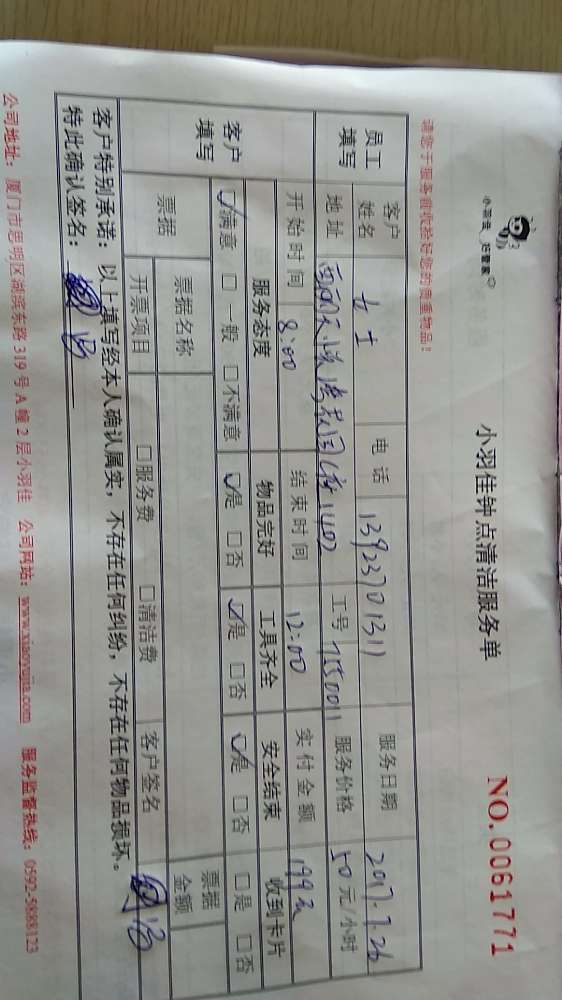 小羽佳 好管家
小羽佳钟点清洁服务单
NO.0061771
请您于服务前收拾好您的贵重物品！
员工填写
客户姓名 女士 电话 13923701311 服务日期 2017.7.26
地址 1402 工号 服务价格 50元/小时
开始时间 8:00 结束时间 12:00 实付金额 199元
客户填写
服务态度 物品完好 工具齐全 安全结束 收到卡片
☑满意 □一般 □不满意 ☑是 □否 ☑是 □否 ☑是 □否 □是 □否
票据 票据名称 票据金额
开票项目 □服务费 □清洁费 客户签名
客户特别承诺：以上填写经本人确认属实，不存在任何纠纷，不存在任何物品损坏。
特此确认签名：
公司地址：厦门市思明区湖滨东路319号A幢2层小羽佳 公司网站：www.xiaoyujia.com 服务监督热线：0592-5888123